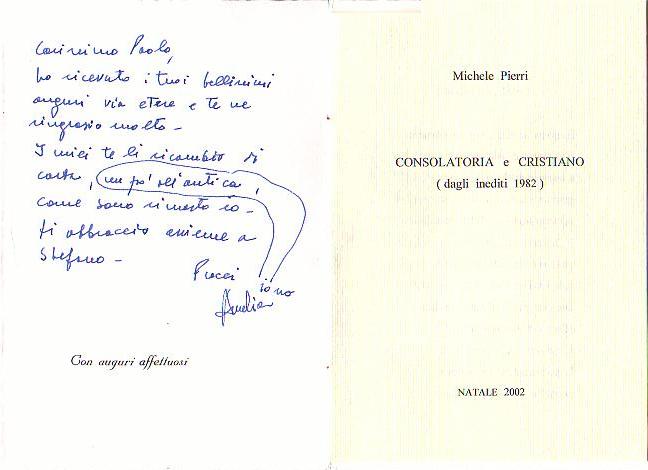 Carissimo Paolo,
ho ricevuto i tuoi bellissimi
auguri via etere e te ne
ringrazio molto -
I miei te li ricambio di
carta, un po' all'antica,
come sono rimasto io -
Ti abbraccio assieme a
Stefano -
Pucci
io no
Con auguri affettuosi
Michele Pierri
CONSOLATORIA e CRISTIANO
( dagli inediti 1982 )
NATALE 2002